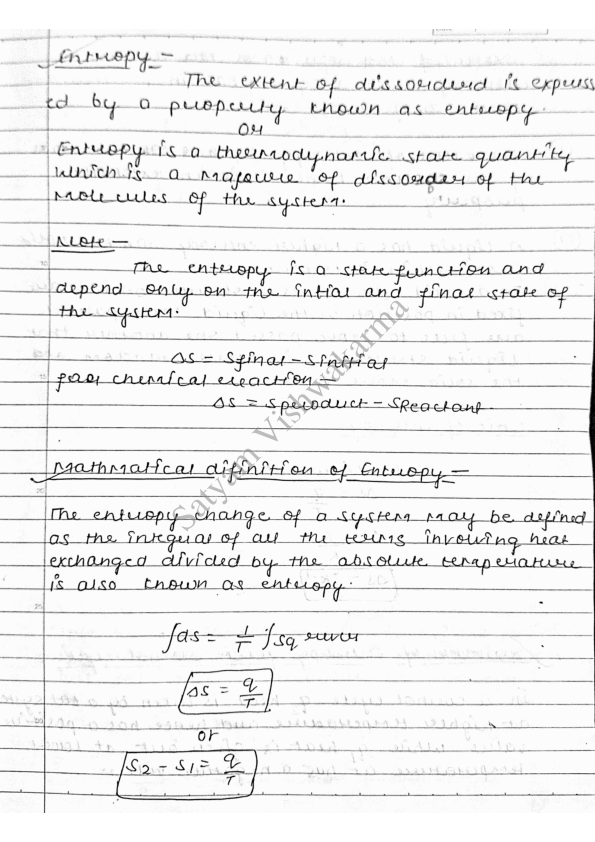 Entropy -
The extent of dissorderd is express
ed by a property known as entropy.
or
Entropy is a thermodynamic state quantity
which is a majoure of dissorder of the
molecules of the system.
Note -
The entropy is a state function and
depend only on the intial and final state of
the system.
ΔS = Sfinal - Sinitial
for chemical reaction -
ΔS = Sproduct - SReactant.
Mathmatical difinition of Entropy -
The entropy change of a system may be defined
as the integral of all the terms involving heat
exchanged divided by the absolute temperature
is also known as entropy.
∫ds = 1/T ∫Sq rever
ΔS = q/T
or
S2 - S1 = q/T
Satyam Vishwakarma